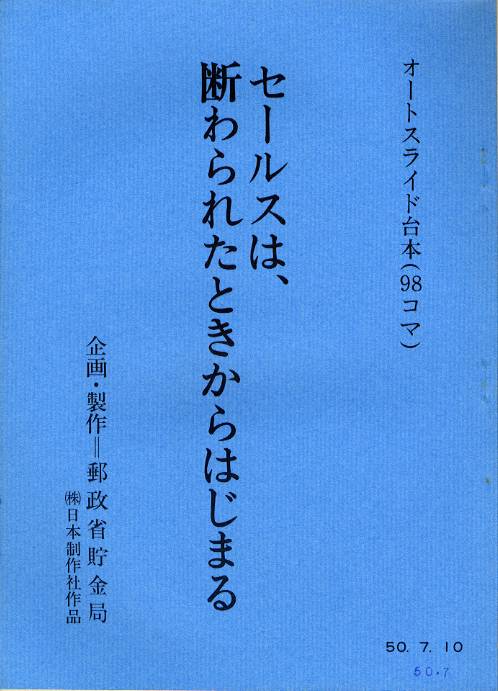 オートスライド台本(98コマ)
セールスは、
断わられたときからはじまる
企画・製作＝郵政省貯金局
㈱日本制作社作品
50. 7. 10
50.7